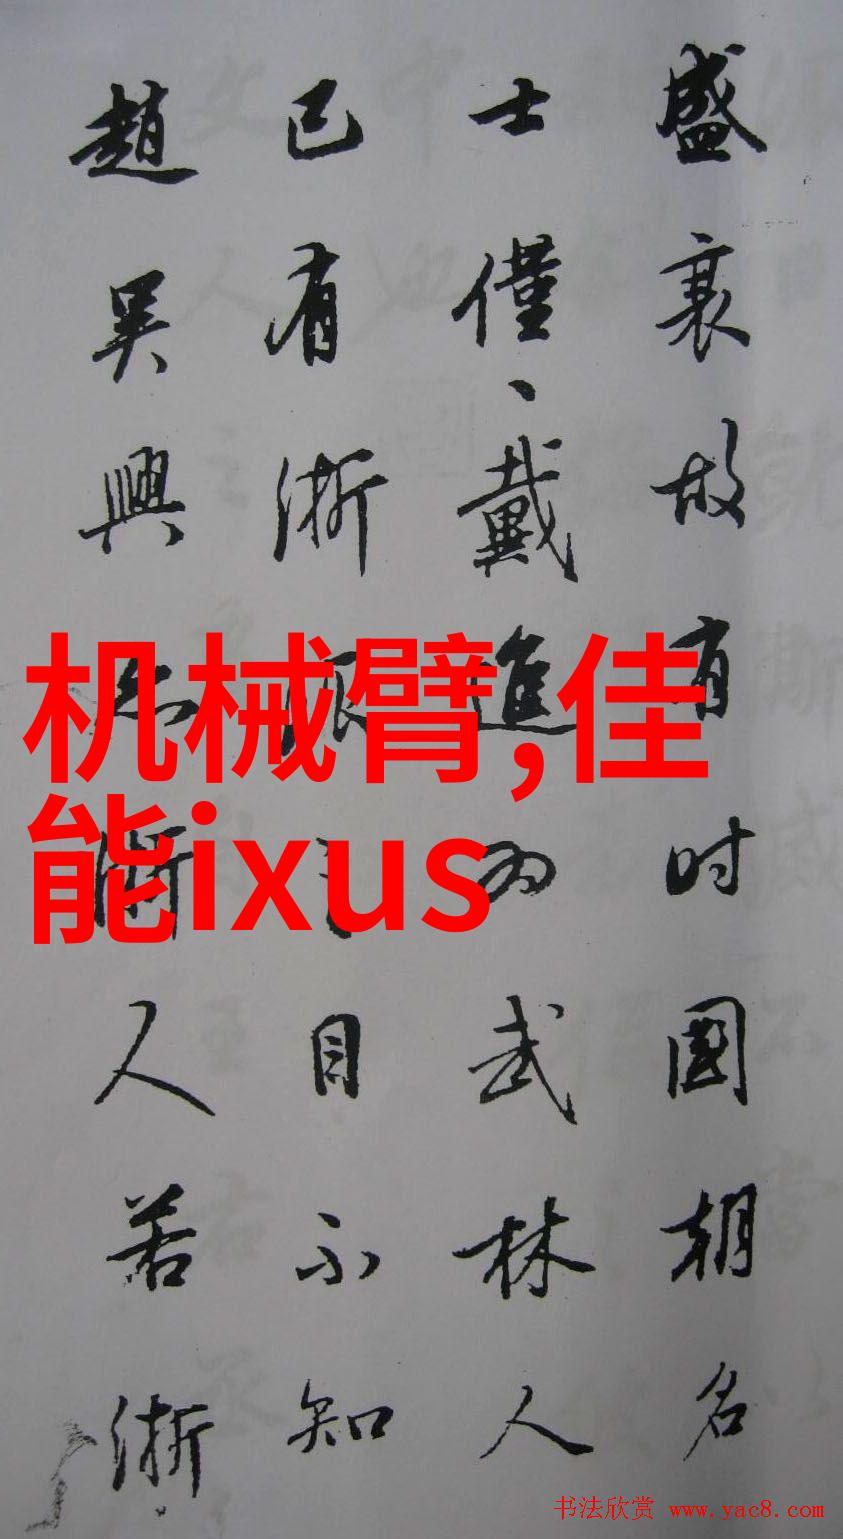 盛衰故有时國朝名
士僅、戴進为武林人
已有浙目不知
趙吳興浙人若浙
机械臂,佳
能ixus
书法欣赏 www.yac8.com